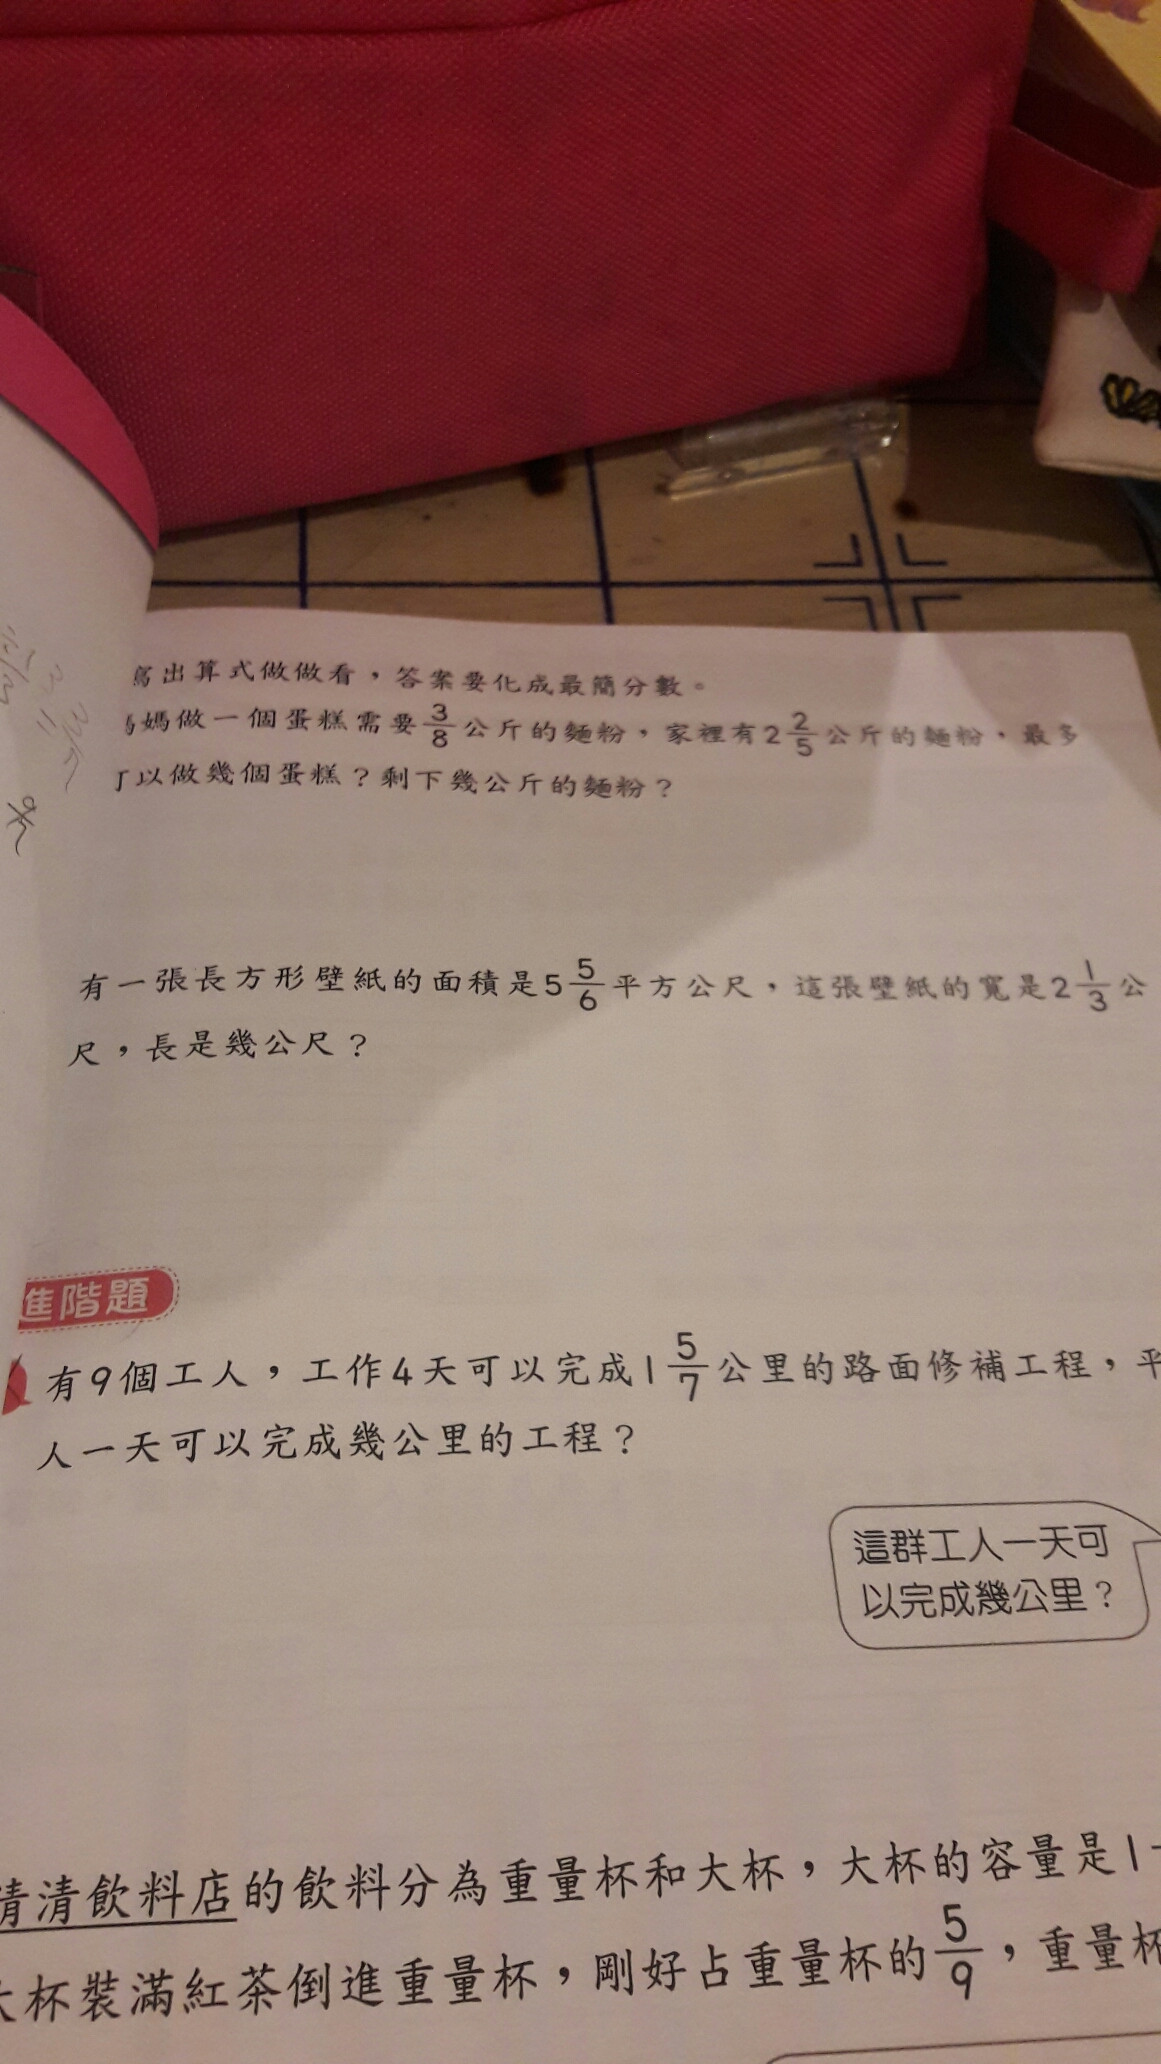 寫出算式做做看，答案要化成最簡分數。
媽媽做一個蛋糕需要3/8公斤的麵粉，家裡有2 2/5公斤的麵粉，最多
可以做幾個蛋糕？剩下幾公斤的麵粉？
有一張長方形壁紙的面積是5 5/6平方公尺，這張壁紙的寬是2 1/3公
尺，長是幾公尺？
進階題
有9個工人，工作4天可以完成1 5/7公里的路面修補工程，平
人一天可以完成幾公里的工程？
這群工人一天可
以完成幾公里？
清清飲料店的飲料分為重量杯和大杯，大杯的容量是1
大杯裝滿紅茶倒進重量杯，剛好占重量杯的5/9，重量杯